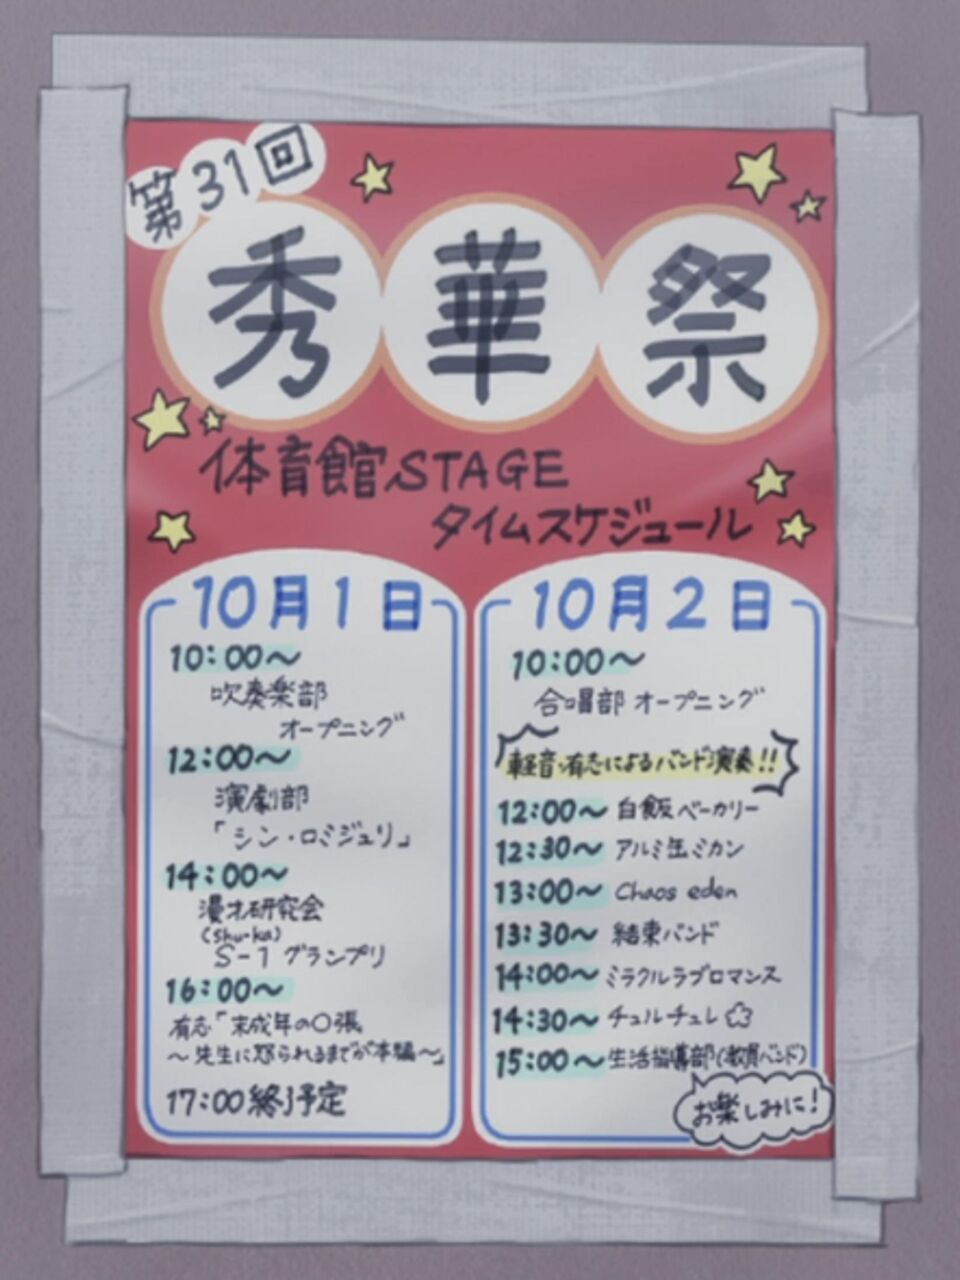 第31回
秀華祭
体育館STAGE
タイムスケジュール
10月1日
10:00～
吹奏楽部
オープニング
12:00～
演劇部
「シン・ロミジュリ」
14:00～
漫才研究会
(shu-ka)
S-1グランプリ
16:00～
有志「未成年の〇張
～先生に怒られるまでが本編～」
17:00終了予定
10月2日
10:00～
合唱部 オープニング
軽音、有志によるバンド演奏!!
12:00～ 白飯ベーカリー
12:30～ アルミ缶ミカン
13:00～ Chaos eden
13:30～ 結束バンド
14:00～ ミラクルラブロマンス
14:30～ チュルチュレ
15:00～ 生活指導部(教員バンド)
お楽しみに!